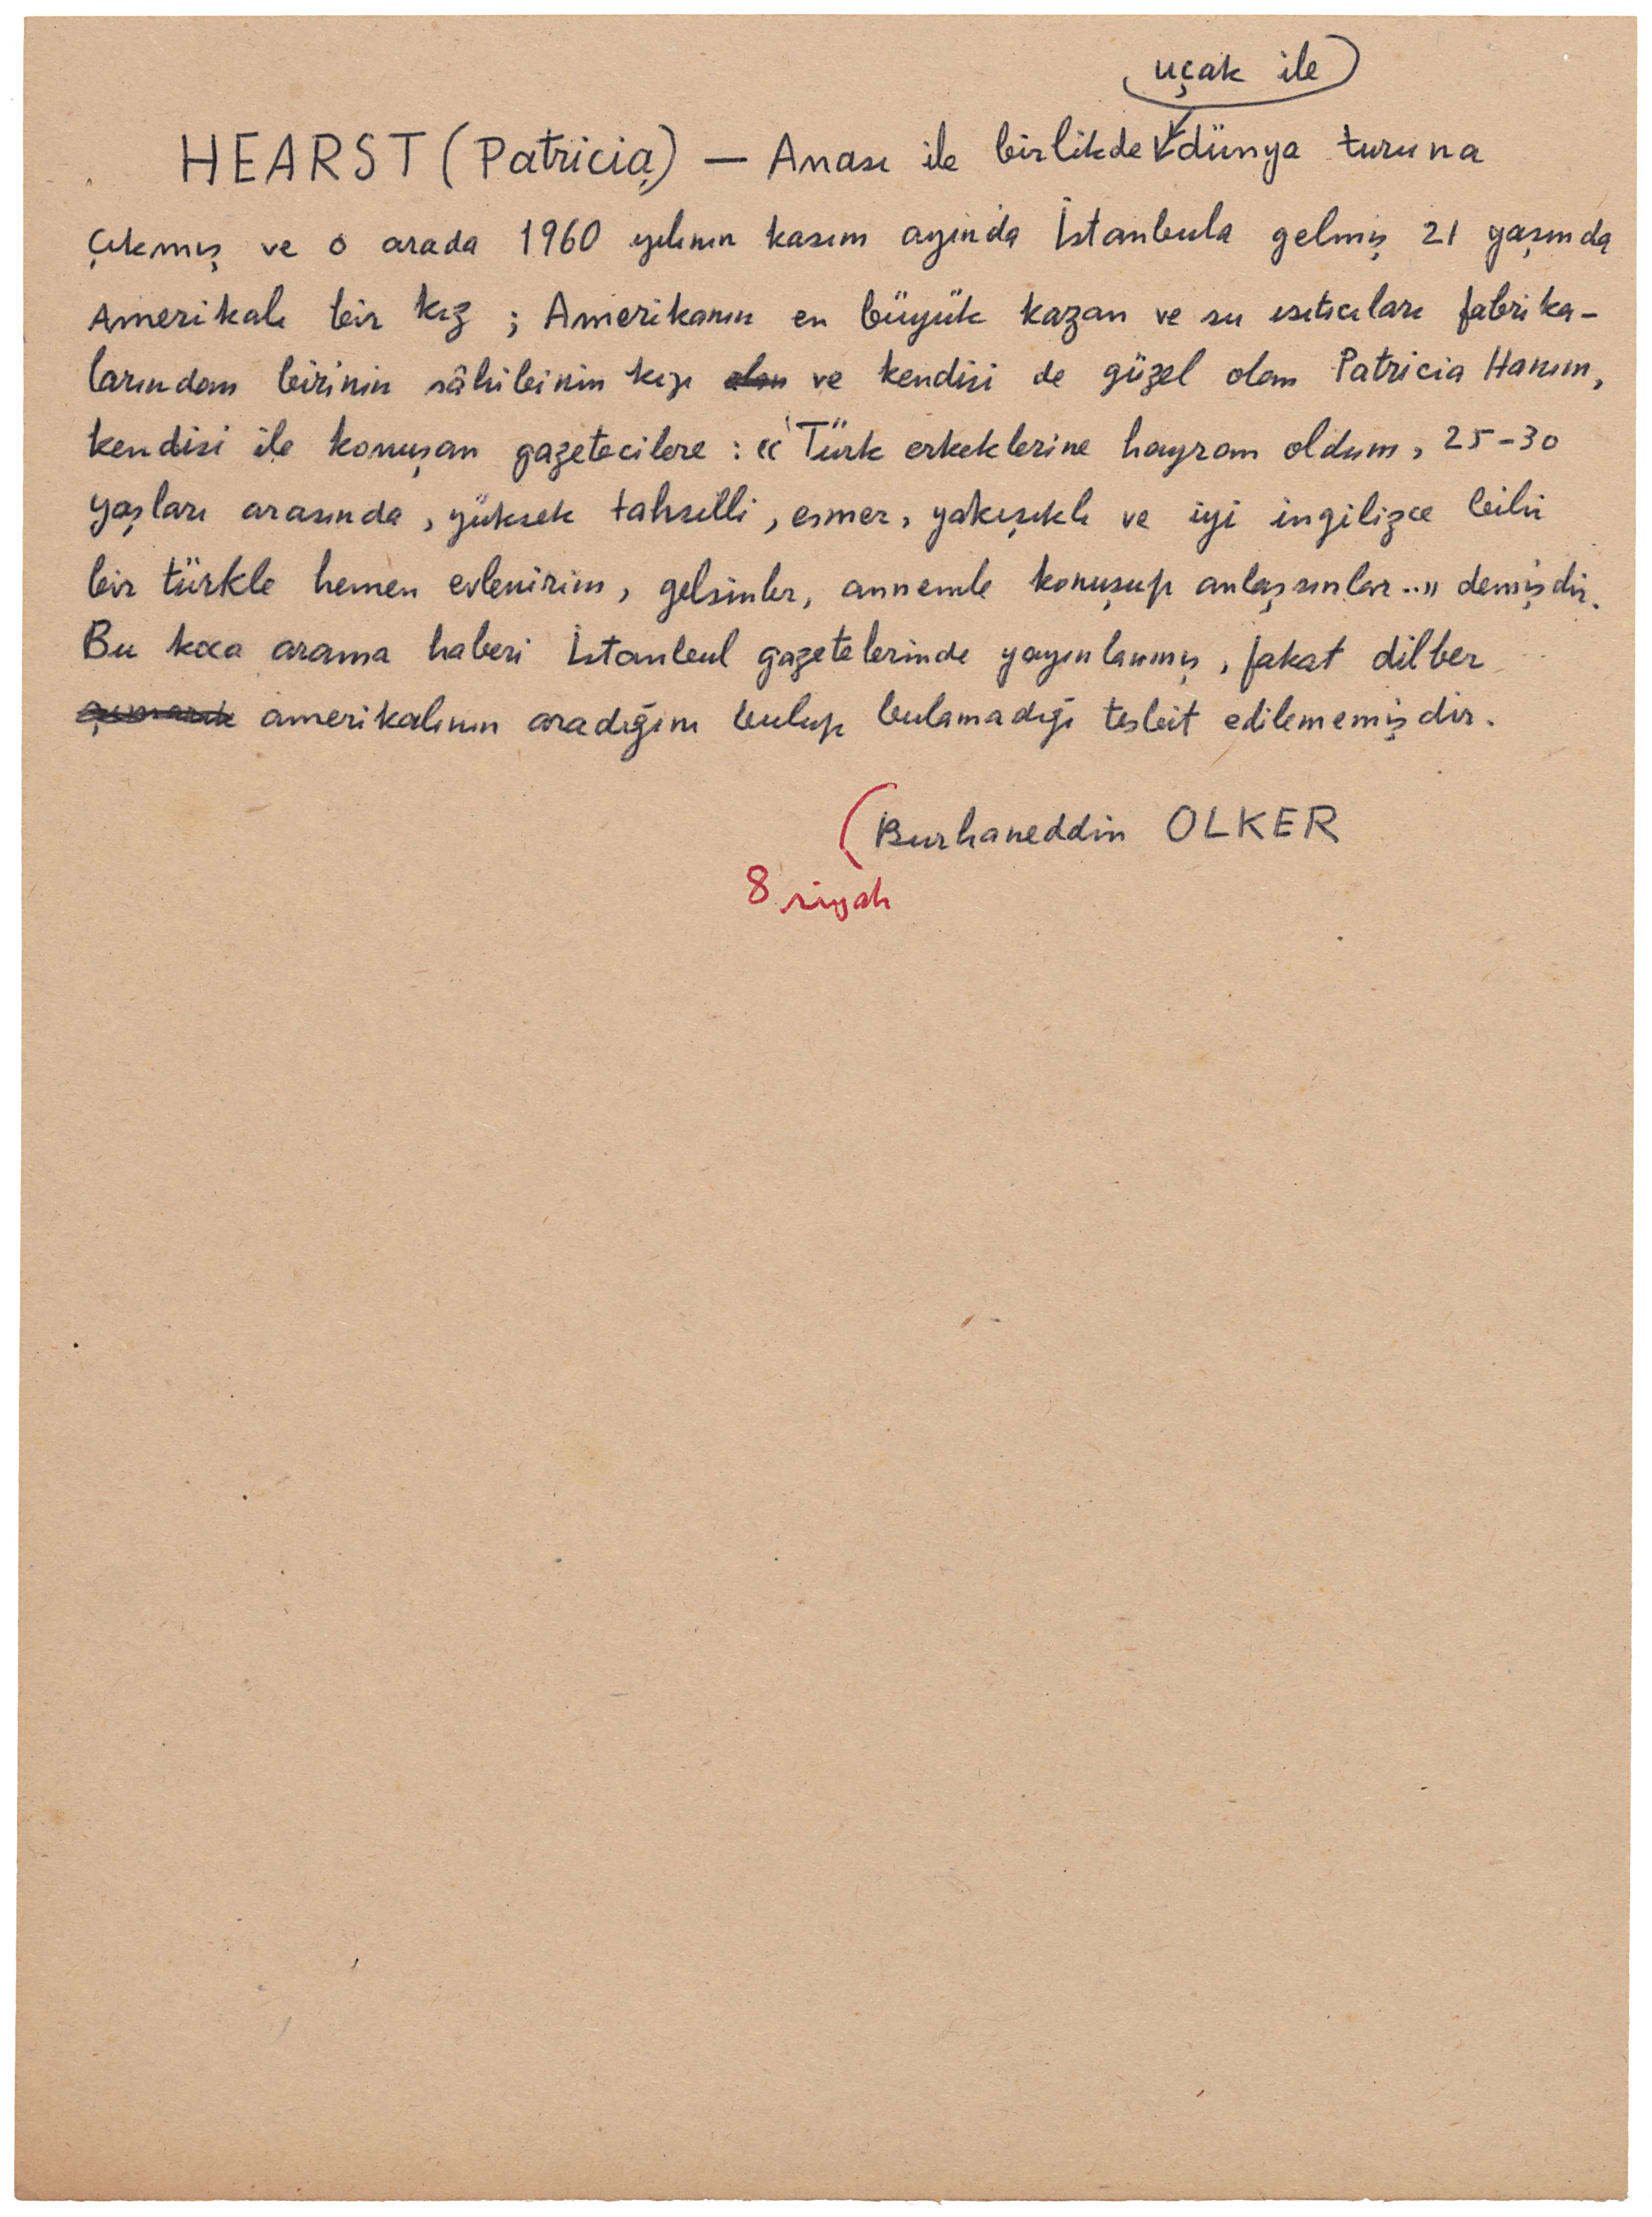 uçak ile
HEARST (Patricia) — Anası ile birlikde dünya turuna
çıkmış ve o arada 1960 yılının kasım ayında İstanbula gelmiş 21 yaşında
Amerikalı bir kız ; Amerikanın en büyük kazan ve su ısıtıcıları fabrika-
larından birinin sâhibinin kızı olan ve kendisi de güzel olan Patricia Hanım,
kendisi ile konuşan gazetecilere : « Türk erkeklerine hayran oldum, 25-30
yaşları arasında, yüksek tahsilli, esmer, yakışıklı ve iyi ingilizce bilir
bir türkle hemen evlenirim, gelsinler, annemle konuşup anlaşsınlar..» demişdir.
Bu koca arama haberi İstanbul gazetelerinde yayınlanmış, fakat dilber
amerikalının aradığını bulup bulamadığı tesbit edilememişdir.
Burhaneddin OLKER
8 siyah